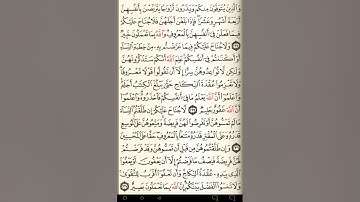 وَٱلَّذِينَ يُتَوَفَّوْنَ مِنكُمْ وَيَذَرُونَ أَزْوَٰجًا يَتَرَبَّصْنَ بِأَنفُسِهِنَّ
أَرْبَعَةَ أَشْهُرٍ وَعَشْرًا فَإِذَا بَلَغْنَ أَجَلَهُنَّ فَلَا جُنَاحَ عَلَيْكُمْ
فِيمَا فَعَلْنَ فِىٓ أَنفُسِهِنَّ بِٱلْمَعْرُوفِ وَٱللَّهُ بِمَا تَعْمَلُونَ خَبِيرٌ
﴿٢٣٤﴾ وَلَا جُنَاحَ عَلَيْكُمْ فِيمَا عَرَّضْتُم بِهِۦ مِنْ خِطْبَةِ ٱلنِّسَآءِ
أَوْ أَكْنَنتُمْ فِىٓ أَنفُسِكُمْ عَلِمَ ٱللَّهُ أَنَّكُمْ سَتَذْكُرُونَهُنَّ
وَلَٰكِن لَّا تُوَاعِدُوهُنَّ سِرًّا إِلَّآ أَن تَقُولُوا۟ قَوْلًا مَّعْرُوفًا
وَلَا تَعْزِمُوا۟ عُقْدَةَ ٱلنِّكَاحِ حَتَّىٰ يَبْلُغَ ٱلْكِتَٰبُ أَجَلَهُۥ
وَٱعْلَمُوٓا۟ أَنَّ ٱللَّهَ يَعْلَمُ مَا فِىٓ أَنفُسِكُمْ فَٱحْذَرُوهُ وَٱعْلَمُوٓا۟
أَنَّ ٱللَّهَ غَفُورٌ حَلِيمٌ ﴿٢٣٥﴾ لَّا جُنَاحَ عَلَيْكُمْ إِن طَلَّقْتُمُ ٱلنِّسَآءَ
مَا لَمْ تَمَسُّوهُنَّ أَوْ تَفْرِضُوا۟ لَهُنَّ فَرِيضَةً وَمَتِّعُوهُنَّ عَلَى ٱلْمُوسِعِ
قَدَرُهُۥ وَعَلَى ٱلْمُقْتِرِ قَدَرُهُۥ مَتَٰعًۢا بِٱلْمَعْرُوفِ حَقًّا عَلَى ٱلْمُحْسِنِينَ
﴿٢٣٦﴾ وَإِن طَلَّقْتُمُوهُنَّ مِن قَبْلِ أَن تَمَسُّوهُنَّ وَقَدْ فَرَضْتُمْ
لَهُنَّ فَرِيضَةً فَنِصْفُ مَا فَرَضْتُمْ إِلَّآ أَن يَعْفُونَ أَوْ يَعْفُوَا۟
ٱلَّذِى بِيَدِهِۦ عُقْدَةُ ٱلنِّكَاحِ وَأَن تَعْفُوٓا۟ أَقْرَبُ لِلتَّقْوَىٰ
وَلَا تَنسَوُا۟ ٱلْفَضْلَ بَيْنَكُمْ إِنَّ ٱللَّهَ بِمَا تَعْمَلُونَ بَصِيرٌ ﴿٢٣٧﴾